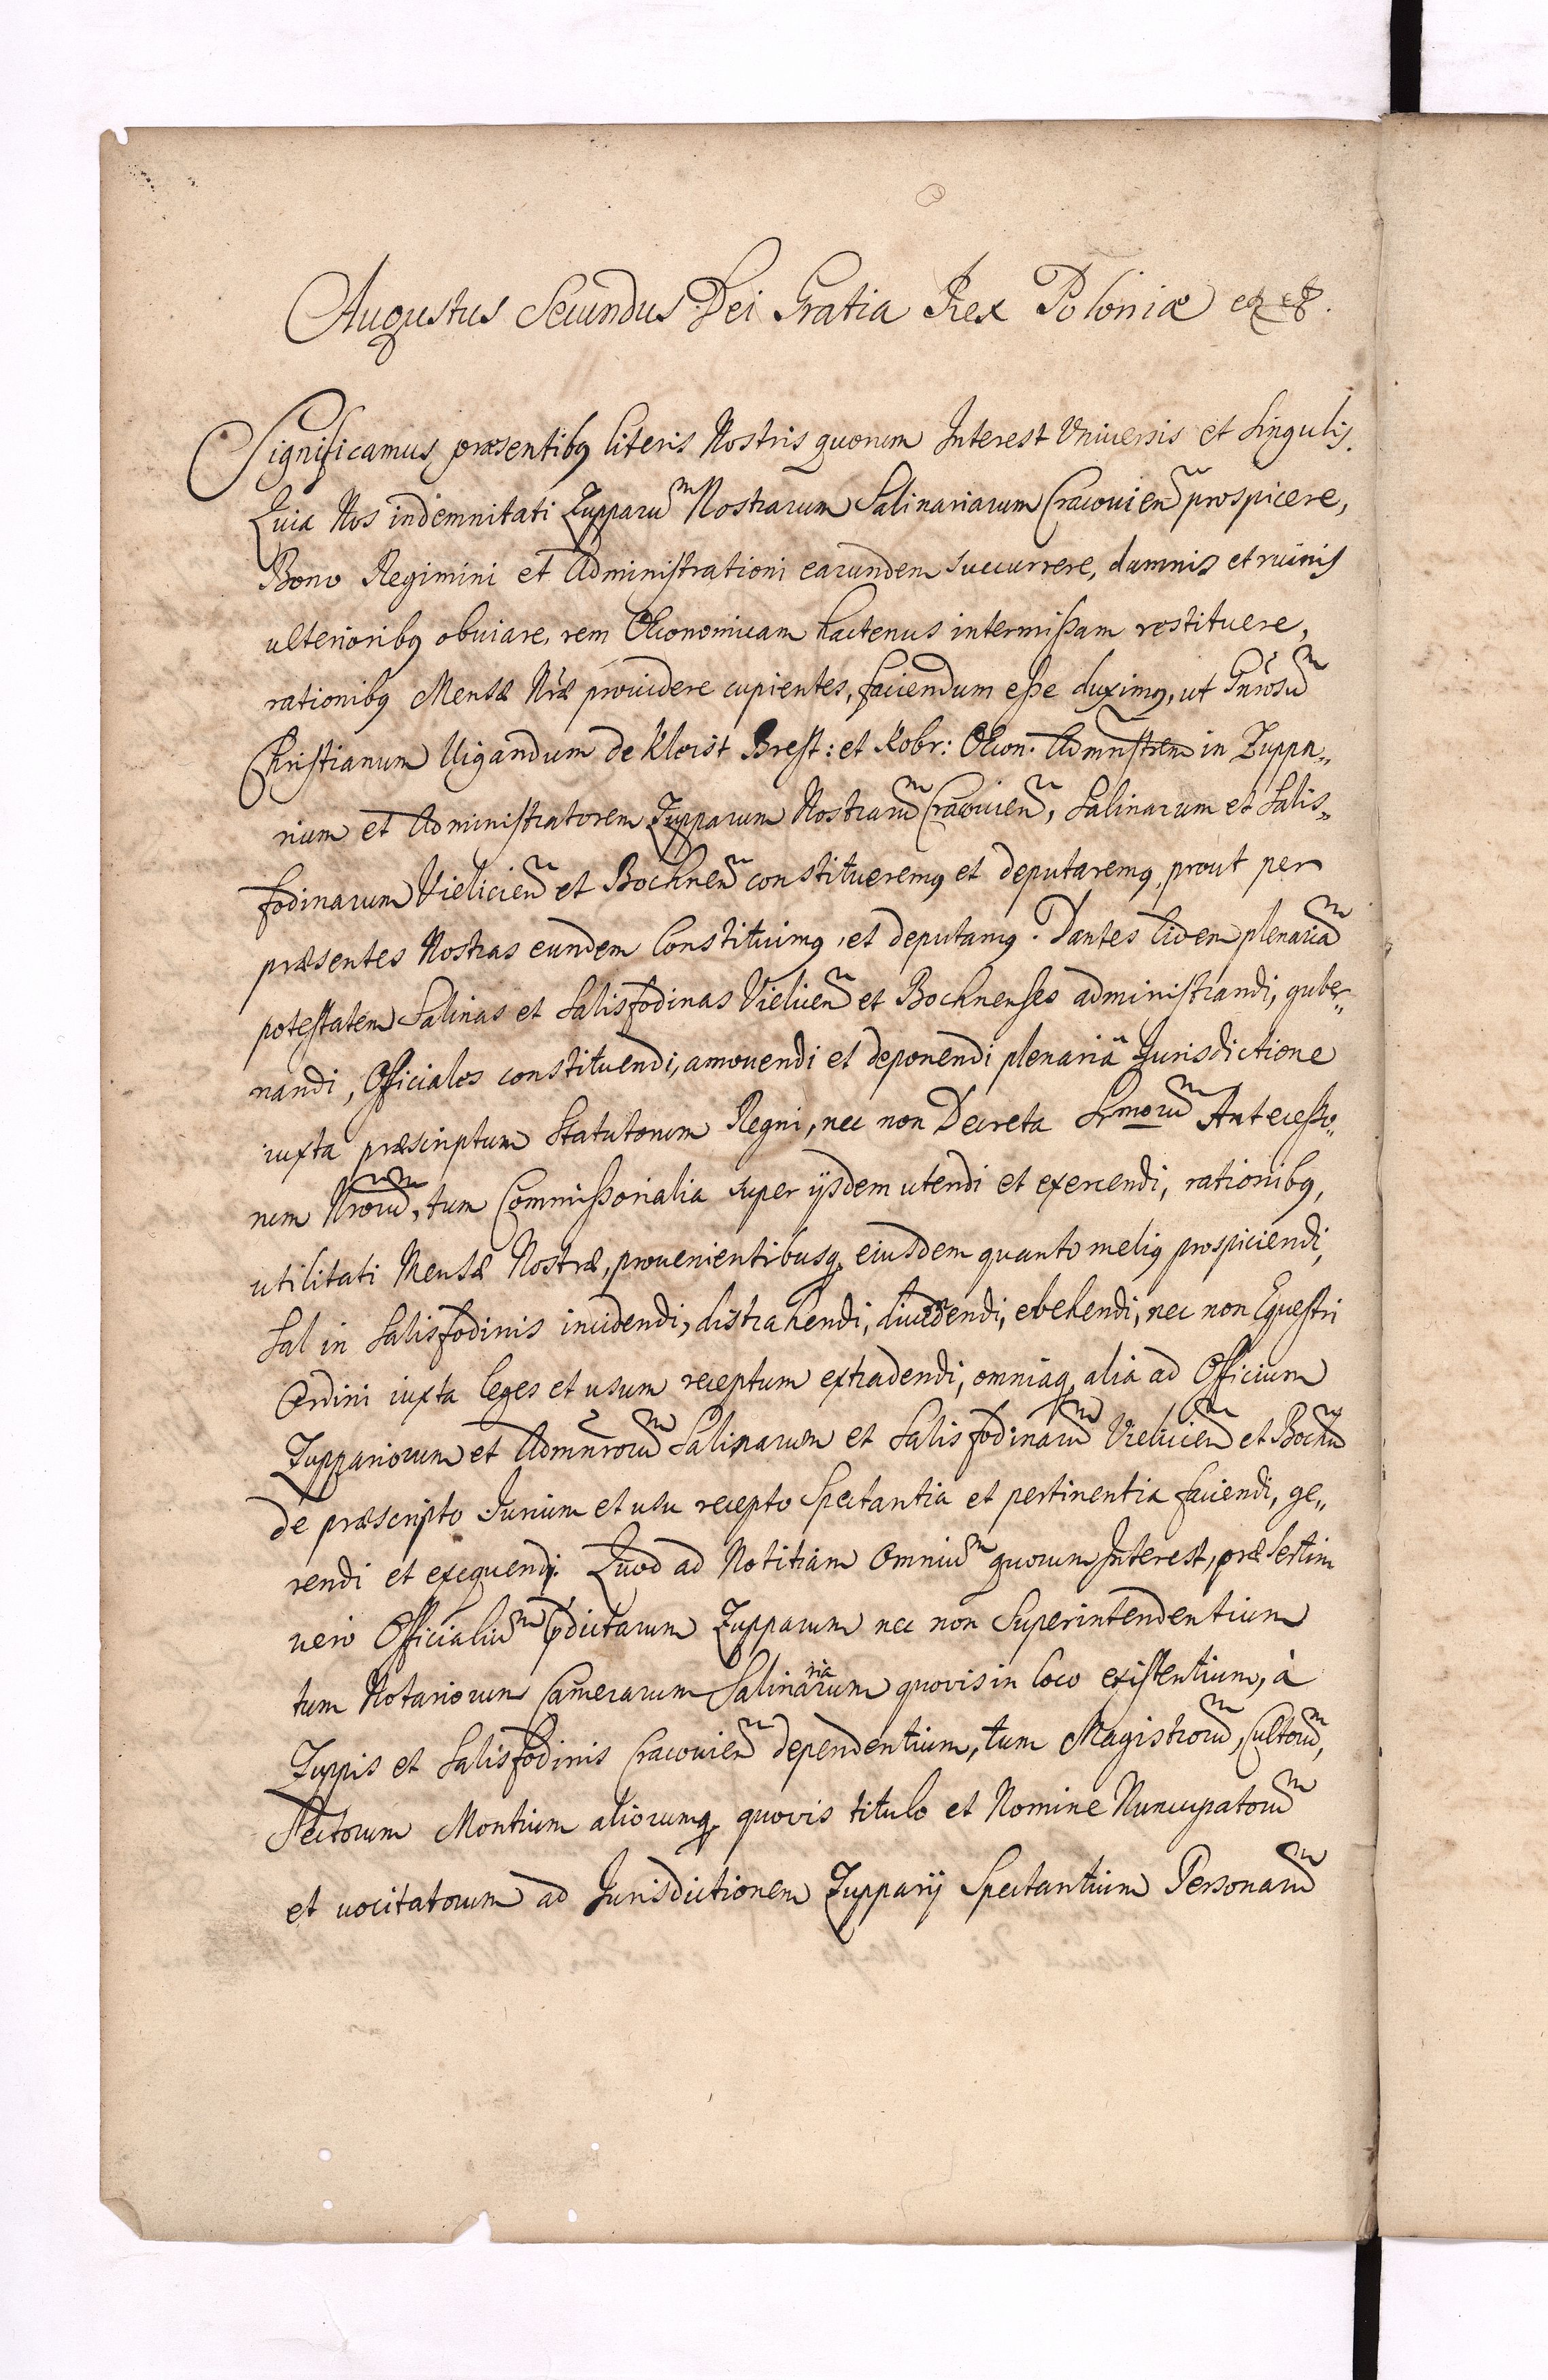 Augustus Secundus Dei Gratia Rex Poloniæ etc etc.
Significamus præsentibꝯ literis Nostris quorum Interest Universis et Singulis.
Quia Nos indemnitati Zupparum Nostrarum Salinariarum Cracovien prospicere,
Bono Regimini et Administrationi earundem succurrere, damnis et ruinis
ulterioribꝯ obuiare, rem Œconomicam hactenus intermissam restituere,
rationibꝯ Mensæ Nræ prouidere cupientes, faciendum esse duximꝯ, ut Gnrosum
Christianum Vigandum de Kleist Brest: et Kobr: Œcon. Admnstrem in Zuppa„
rium et Administratorem Zupparum Nostrarum Cracovien, Salinarum et Salis„
fodinarum Vieliscien et Bochnen constitueremꝯ et deputaremꝯ, prout per
præsentes Nostras eundem Constituimꝯ, et deputamꝯ. Dantes Eidem plenariam
potestatem Salinas et Salisfodinas Vielicen et Bochnenses administrandi, guber„
nandi, Officiales constituendi, amovendi et deponendi plenariâ Jurisdictione
iuxta præscriptum Statutorum Regni, nec non Decreta Srmorum Antecesso„
rum Nrorum, tum Commissorialia super ijsdem utendi et exercendi, rationibꝯ,
utilitati Mensæ Nostræ, prouenientibusq eiusdem quanto meliꝯ prospiciendi,
Sal in Salisfodinis incidendi, distrahendi, divendendi, evehendi, nec non Equestri
Ordini iuxta leges et usum receptum extradendi, omniaq alia ad Officium
Zuppariorum et Admnrorum Salinarum et Salisfodinarum Vielicien et Bochn
de præscripto Jurium et usu recepto Spectantia et pertinentia faciendi, ge„
rendi et exequendi. Quod ad Notitiam Omnium quorum Interest, præsertim
vero Officialium pdictarum Zupparum nec non Superintendentium
tum Notariorum Camerarum Salinariarum quovis in loco existentium, à
Zuppis et Salisfodinis Cracovien dependentium, tum Magistrorum, Cultorum,
Sectorum Montium aliorumq quovis titulo et Nomine Nuncupatorum
et vocitatorum ad Jurisdictionem Zupparij Spectantium Personarum